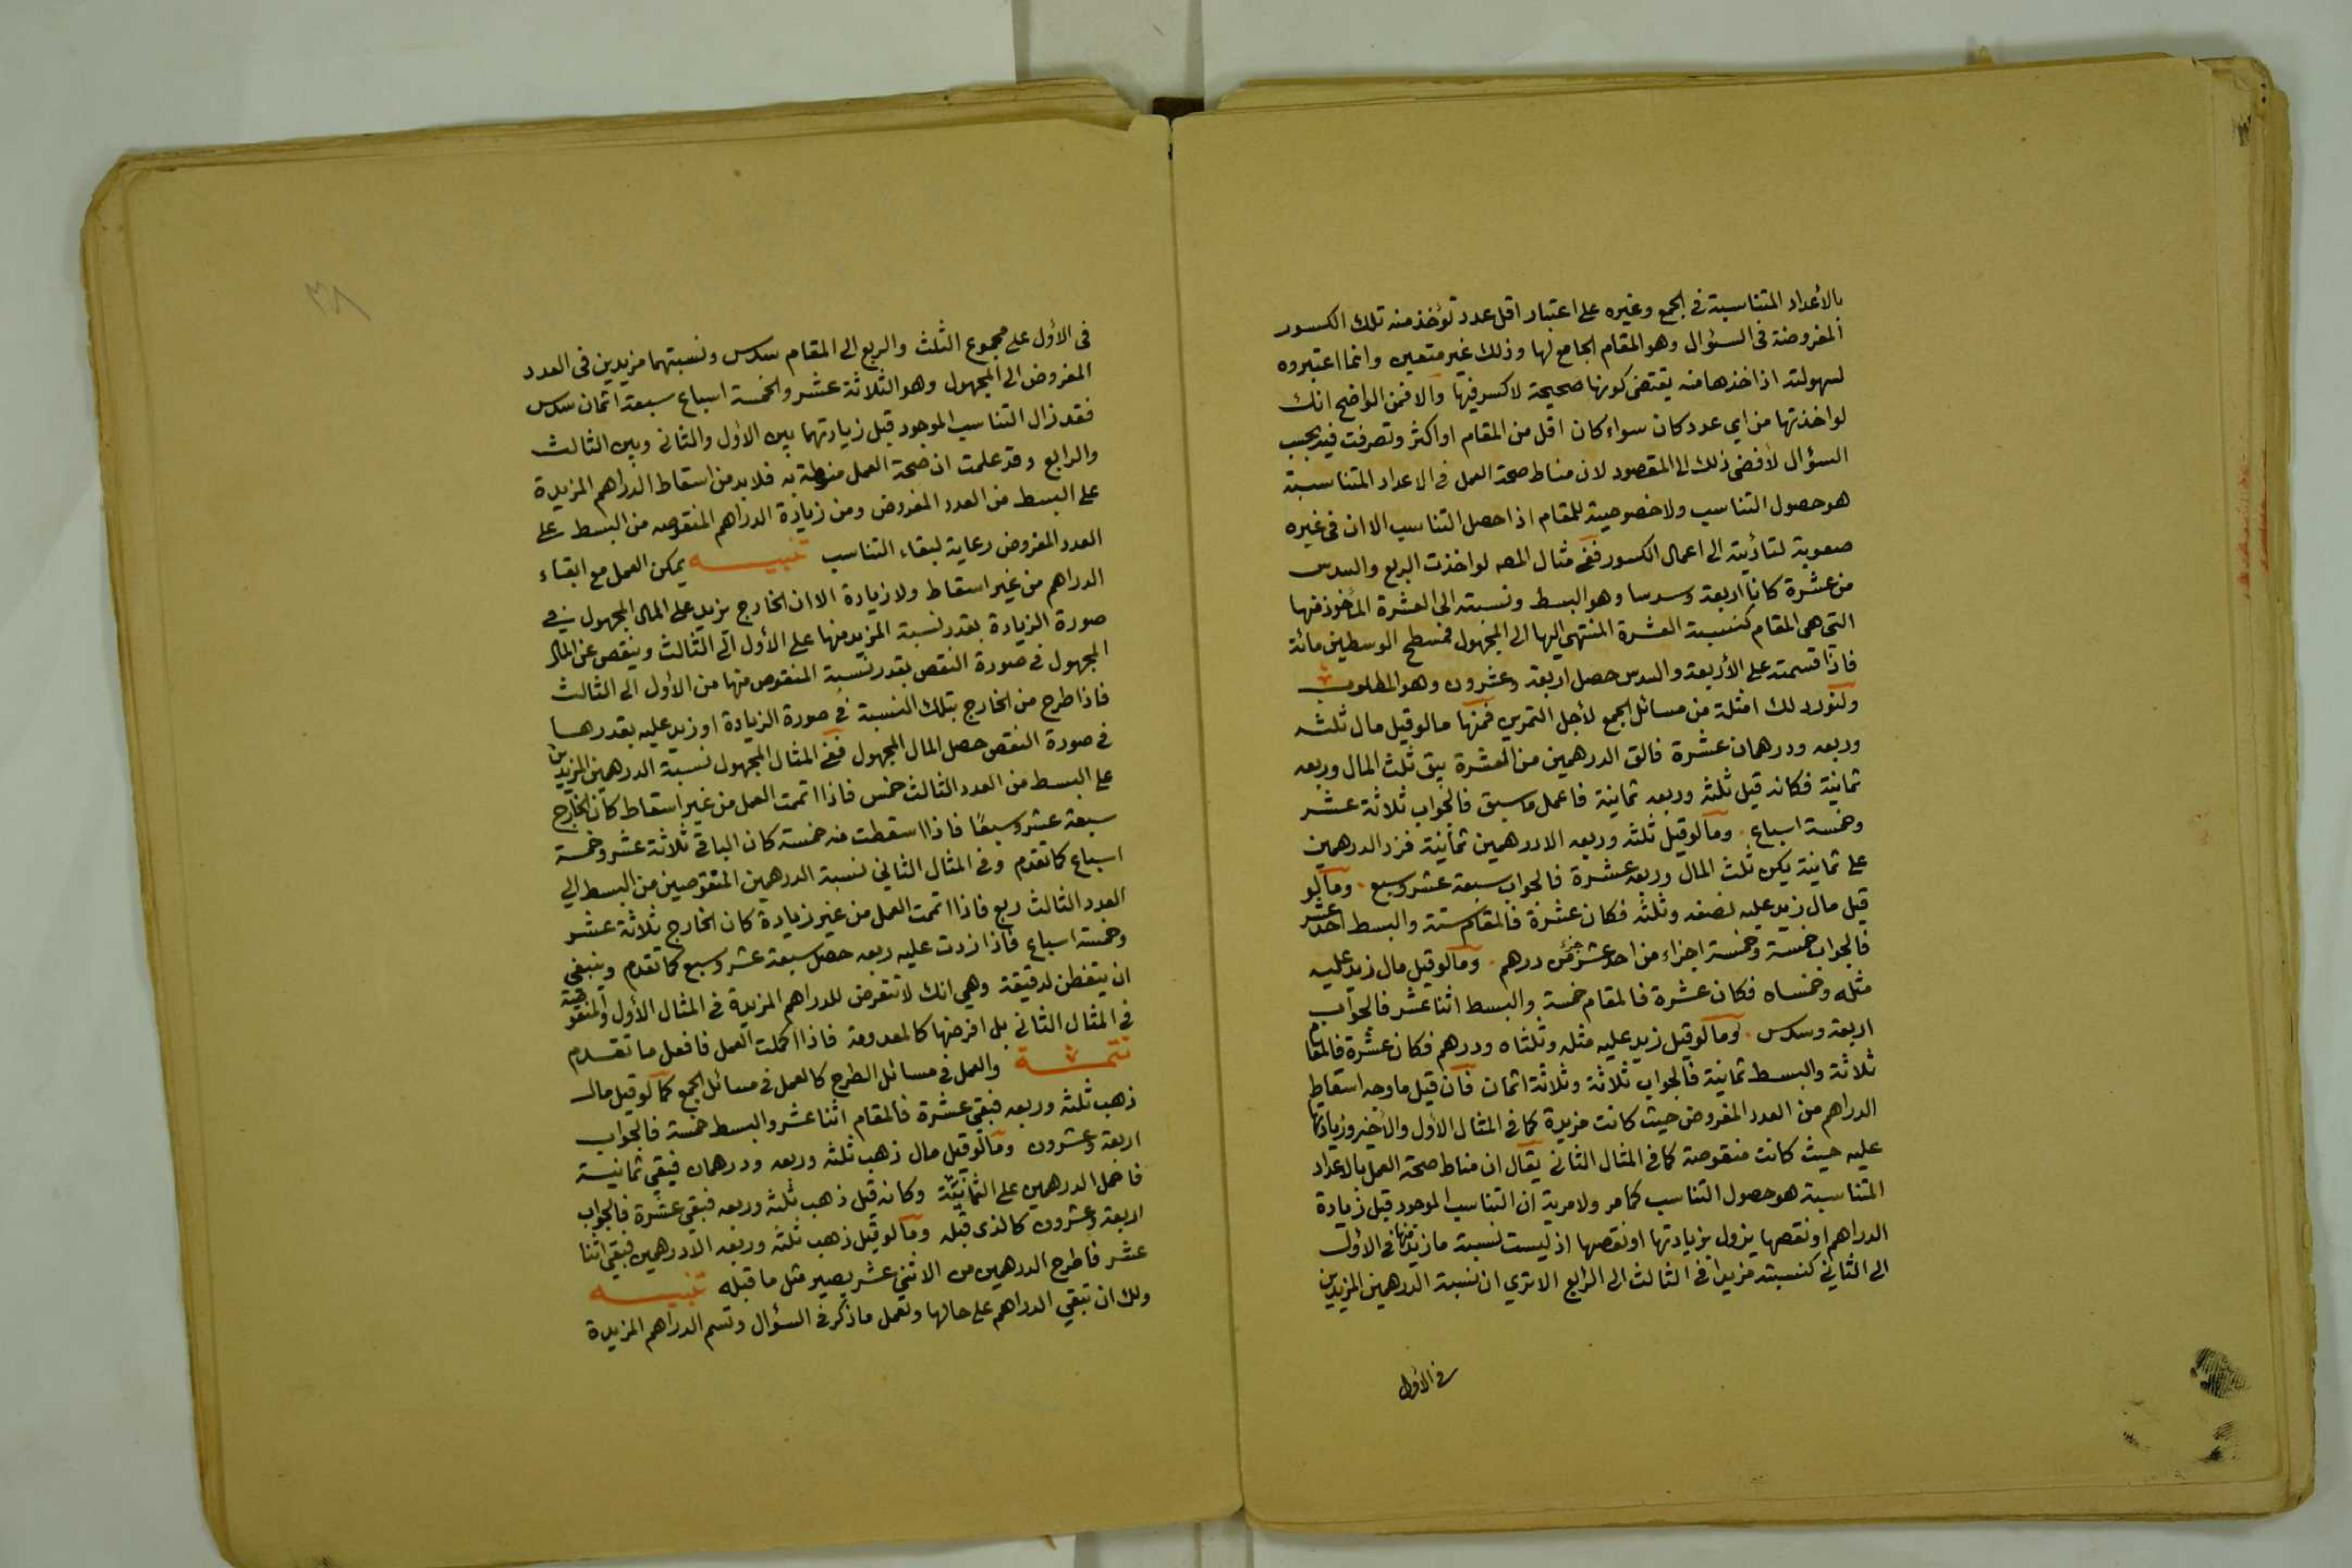 بالأعداد المتناسبة في الجمع وغيره على اعتبار اقل عدد تؤخذ منه تلك الكسور
المفروضة في السؤال وهو المقام الجامع لها وذلك غير متعين وانما اعتبروه
لسهولته اذ اخذها منه يقتضى كونها صحيحة لا كسر فيها والا فمن الواضح انك
لو اخذتها من اي عدد كان سواء كان اقل من المقام او اكثر وتصرفت فيه بحسب
السؤال لأفضى ذلك الى المقصود لان مناط صحة العمل في الاعداد المتناسبة
هو حصول التناسب ولا خصوصية للمقام اذا حصل التناسب الا ان في غيره
صعوبة لتأديته الى اعمال الكسور ففي مثال المصه لو اخذت الربع والسدس
من عشرة كانا اربعة وسدسا وهو البسط ونسبته الى العشرة المأخوذ منها
التي هي المقام كنسبة العشرة المنتهى اليها الى المجهول فمسطح الوسطين مائة
فاذا قسمته على الأربعة والسدس حصل اربعة وعشرون وهو المطلوب
ولنورد لك امثلة من مسائل الجمع لأجل التمرين فمنها ما لو قيل مال ثلثه
وربعه ودرهمان عشرة فالق الدرهمين من العشرة يبق ثلث المال وربعه
ثمانية فكانه قيل ثلثه وربعه ثمانية فاعمل ما سبق فالجواب ثلاثة عشر
وخمسة اسباع . وما لو قيل ثلثه وربعه الا درهمين ثمانية فزد الدرهمين
على ثمانية يكن ثلث المال وربعه عشرة فالجواب سبعة عشر وسبع . وما لو
قيل مال زيد عليه نصفه وثلثه فكان عشرة فالمقام ستة والبسط احد عشر
فالجواب خمسة وخمسة اجزاء من احد عشر جزء من درهم . وما لو قيل مال زيد عليه
مثله وخمساه فكان عشرة فالمقام خمسة والبسط اثنا عشر فالجواب
اربعة وسدس . وما لو قيل زيد عليه مثله وثلثاه ودرهم فكان عشرة فالمقام
ثلاثة والبسط ثمانية فالجواب ثلاثة وثلاثة اثمان فان قيل ما وجه اسقاط
الدراهم من العدد المفروض حيث كانت مزيدة كما في المثال الأول والأخير وزيادتها
عليه حيث كانت منقوصة كما في المثال الثاني يقال ان مناط صحة العمل بالاعداد
المتناسبة هو حصول التناسب كما مر ولا مرية ان التناسب الموجود قبل زيادة
الدراهم او نقصها يزول بزيادتها او نقصها اذ ليست نسبة ما زيد منها في الأول
الى الثاني كنسبته مزيدا في الثالث الى الرابع الا ترى ان نسبة الدرهمين المزيدين
في الأول
٣٨
في الأول على مجموع الثلث والربع الى المقام سدس ونسبتهما مزيدين في العدد
المفروض الى المجهول وهو الثلاثة عشر والخمسة اسباع سبعة اثمان سدس
فقد زال التناسب الموجود قبل زيادتهما بين الاول والثاني وبين الثالث
والرابع وقد علمت ان صحة العمل منوطة به فلا بد من اسقاط الدراهم المزيدة
على البسط من العدد المفروض ومن زيادة الدراهم المنقوصه من البسط على
العدد المفروض رعاية لبقاء التناسب تنبيـــه يمكن العمل مع ابقاء
الدراهم من غير اسقاط ولا زيادة الا ان الخارج يزيد على المال المجهول في
صورة الزيادة بقدر نسبة المزيد منها على الأول الى الثالث وينقص عن المال
المجهول في صورة النقص بقدر نسبة المنقوص منها من الأول الى الثالث
فاذا طرح من الخارج بتلك النسبة في صورة الزيادة او زيد عليه بقدرها
في صورة النقص حصل المال المجهول ففي المثال المجهول نسبة الدرهمين المزيدين
على البسط من العدد الثالث خمس فاذا اتممت العمل من غير اسقاط كان الخارج
سبعة عشر وسبعا فاذا اسقطت منه خمسة كان الباقي ثلاثة عشر وخمسة
اسباع كما تقدم وفي المثال الثاني نسبة الدرهمين المنقوصين من البسط الى
العدد الثالث ربع فاذا اتممت العمل من غير زيادة كان الخارج ثلاثة عشر
وخمسة اسباع فاذا زدت عليه ربعه حصل سبعة عشر وسبع كما تقدم وينبغي
ان يتفطن لدقيقة وهي انك لا تتعرض للدراهم المزيدة في المثال الأول والمنقوصة
في المثال الثاني بل افرضها كالمعدومة فاذا اكملت العمل فافعل ما تقدم
تتمـــة والعمل في مسائل الطرح كالعمل في مسائل الجمع كما لو قيل مال
ذهب ثلثه وربعه فبقي عشرة فالمقام اثنا عشر والبسط خمسة فالجواب
اربعة وعشرون وما لو قيل مال ذهب ثلثه وربعه ودرهمان فبقي ثمانية
فاحمل الدرهمين على الثمانية وكانه قيل ذهب ثلثه وربعه فبقي عشرة فالجواب
اربعة وعشرون كالذي قبله وما لو قيل ذهب ثلثه وربعه الا درهمين فبقي اثنا
عشر فاطرح الدرهمين من الاثني عشر يصير مثل ما قبله تنبيـــه
ولك ان تبقي الدراهم على حالها وتعمل ما ذكر في السؤال وتسم الدراهم المزيدة